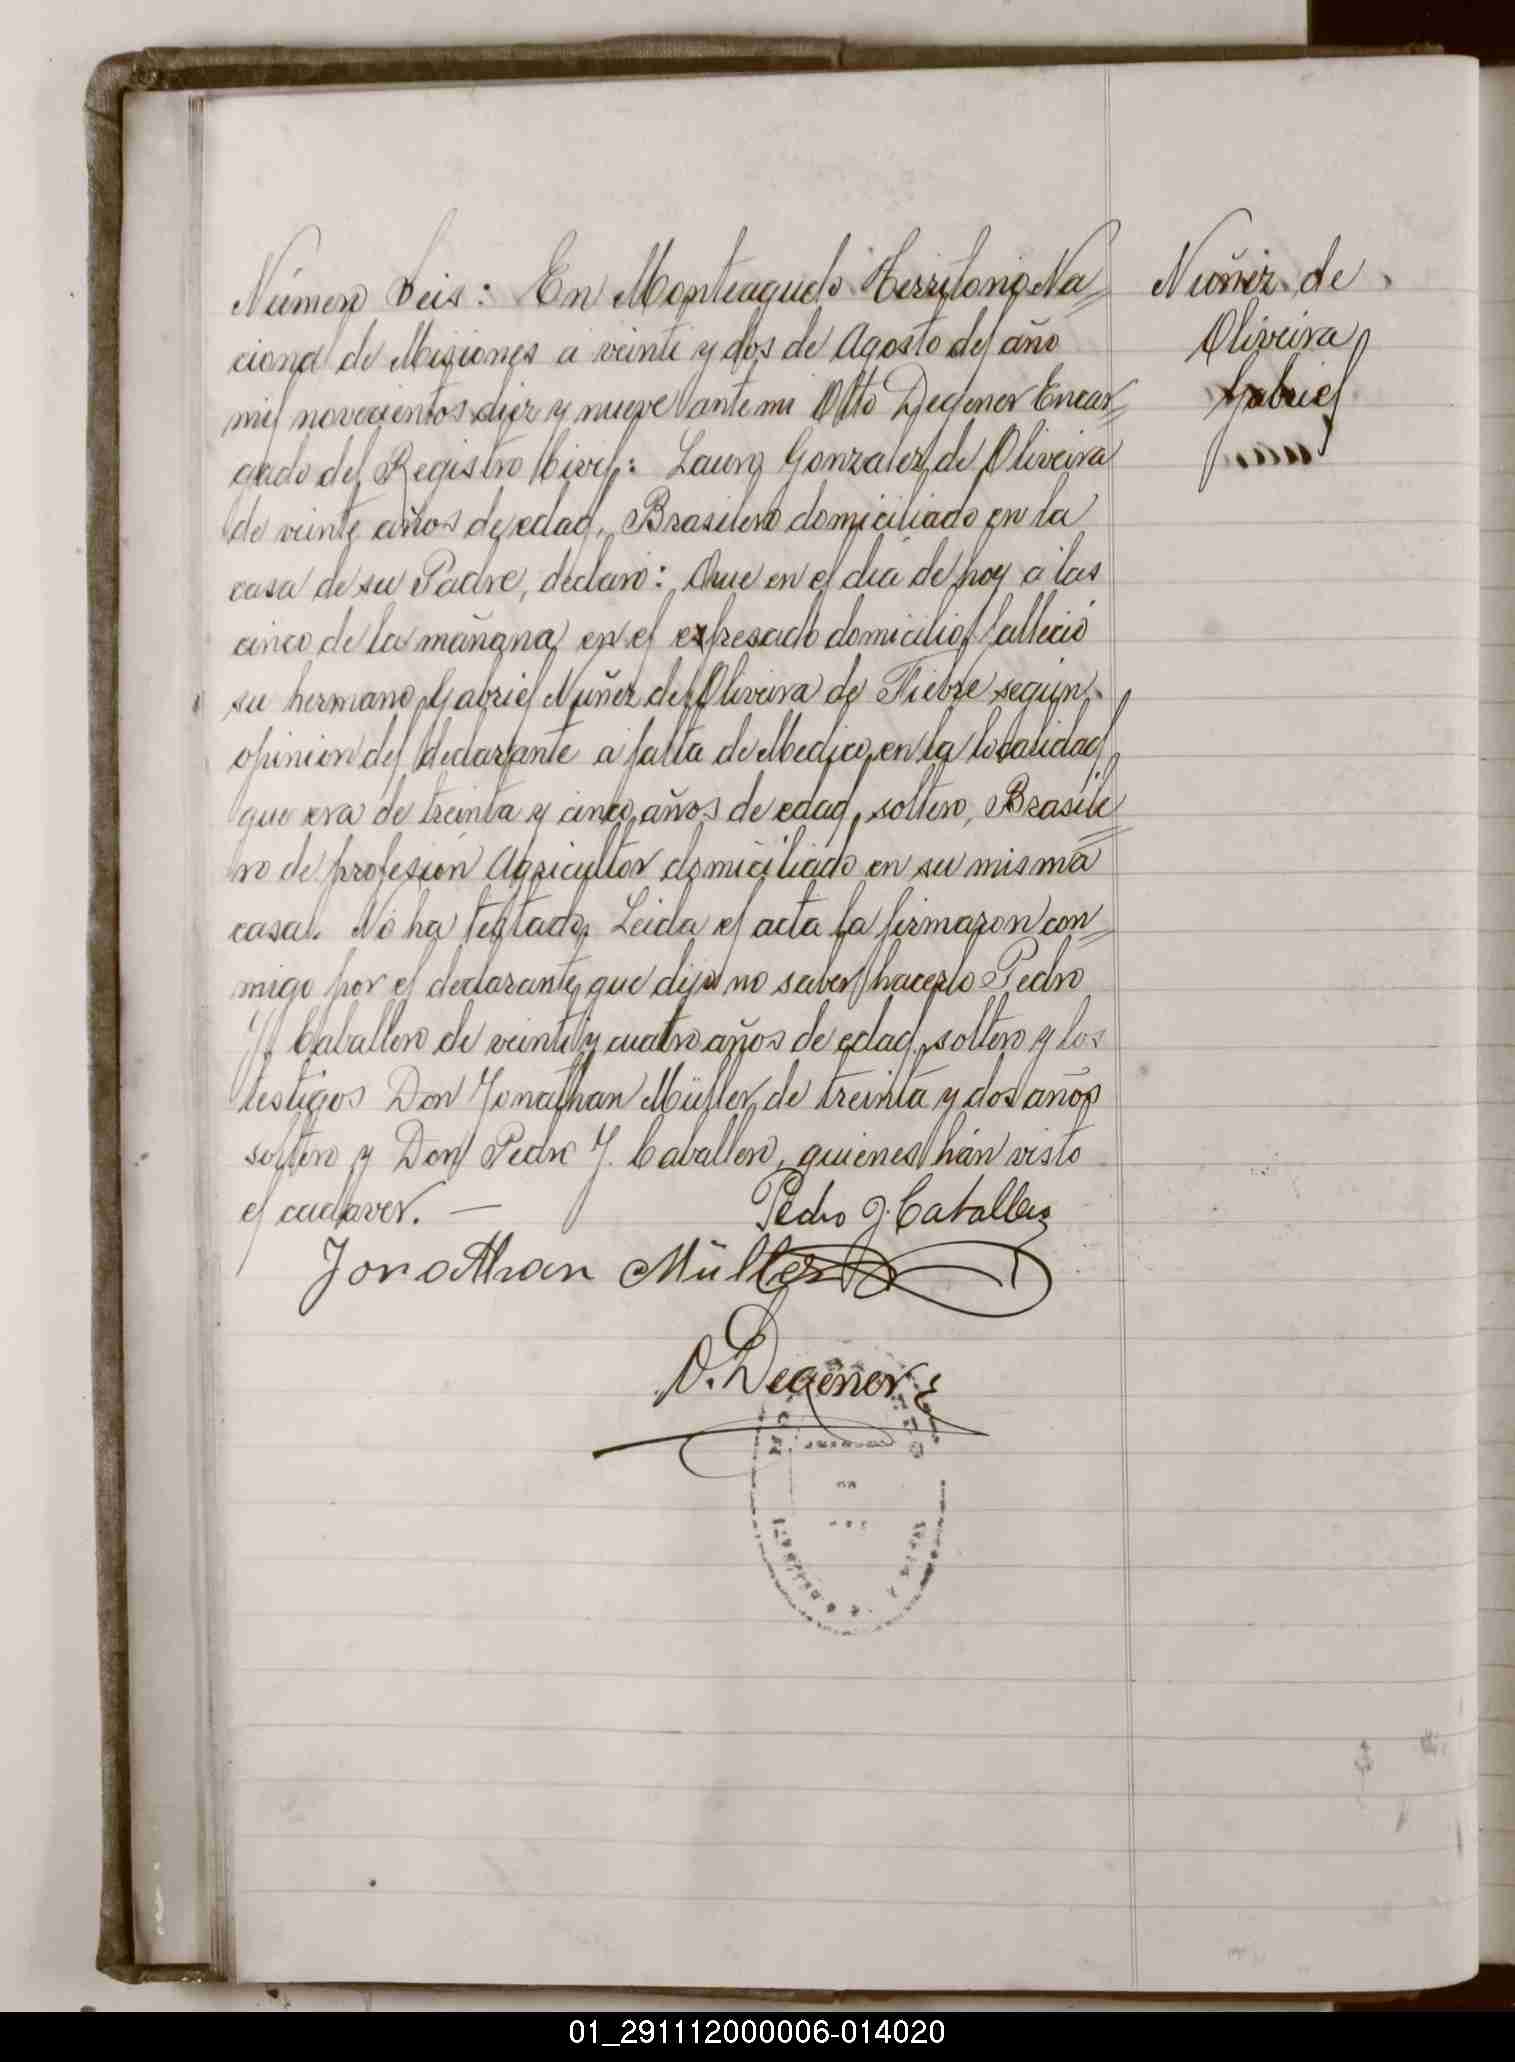 Número Seis: En Monteagudo Territorio Na=
cional de Misiones a veinte y dos de Agosto del año
mil novecientos diez y nueve ante mi Otto Degener Encar=
gado del Registro Civil: Lauro Gonzalez de Oliveira
de veinte años de edad, Brasilero domiciliado en la
casa de su Padre, declaró: Que en el dia de hoy a las
cinco de la mañana en el expresado domicilio falleció
su hermano Gabriel Nuñez de Oliveira de Fiebre según
opinion del declarante a falta de Medico en la localidad,
que era de treinta y cinco años de edad, soltero, Brasile=
ro de profesión Agricultor domiciliado en su misma
casa. No ha testado. Leida el acta la firmaron con=
migo por el declarante que dijo no saber hacerlo Pedro
J. Caballero de veinte y cuatro años de edad, soltero y los
testigos Don Jonathan Müller de treinta y dos años
soltero y Don Pedro J. Caballero, quienes hán visto
el cadaver. —
Pedro J. Caballero
Jonathan Müller
O. Degener
Nuñez de
Oliveira
Gabriel
01_291112000006-014020